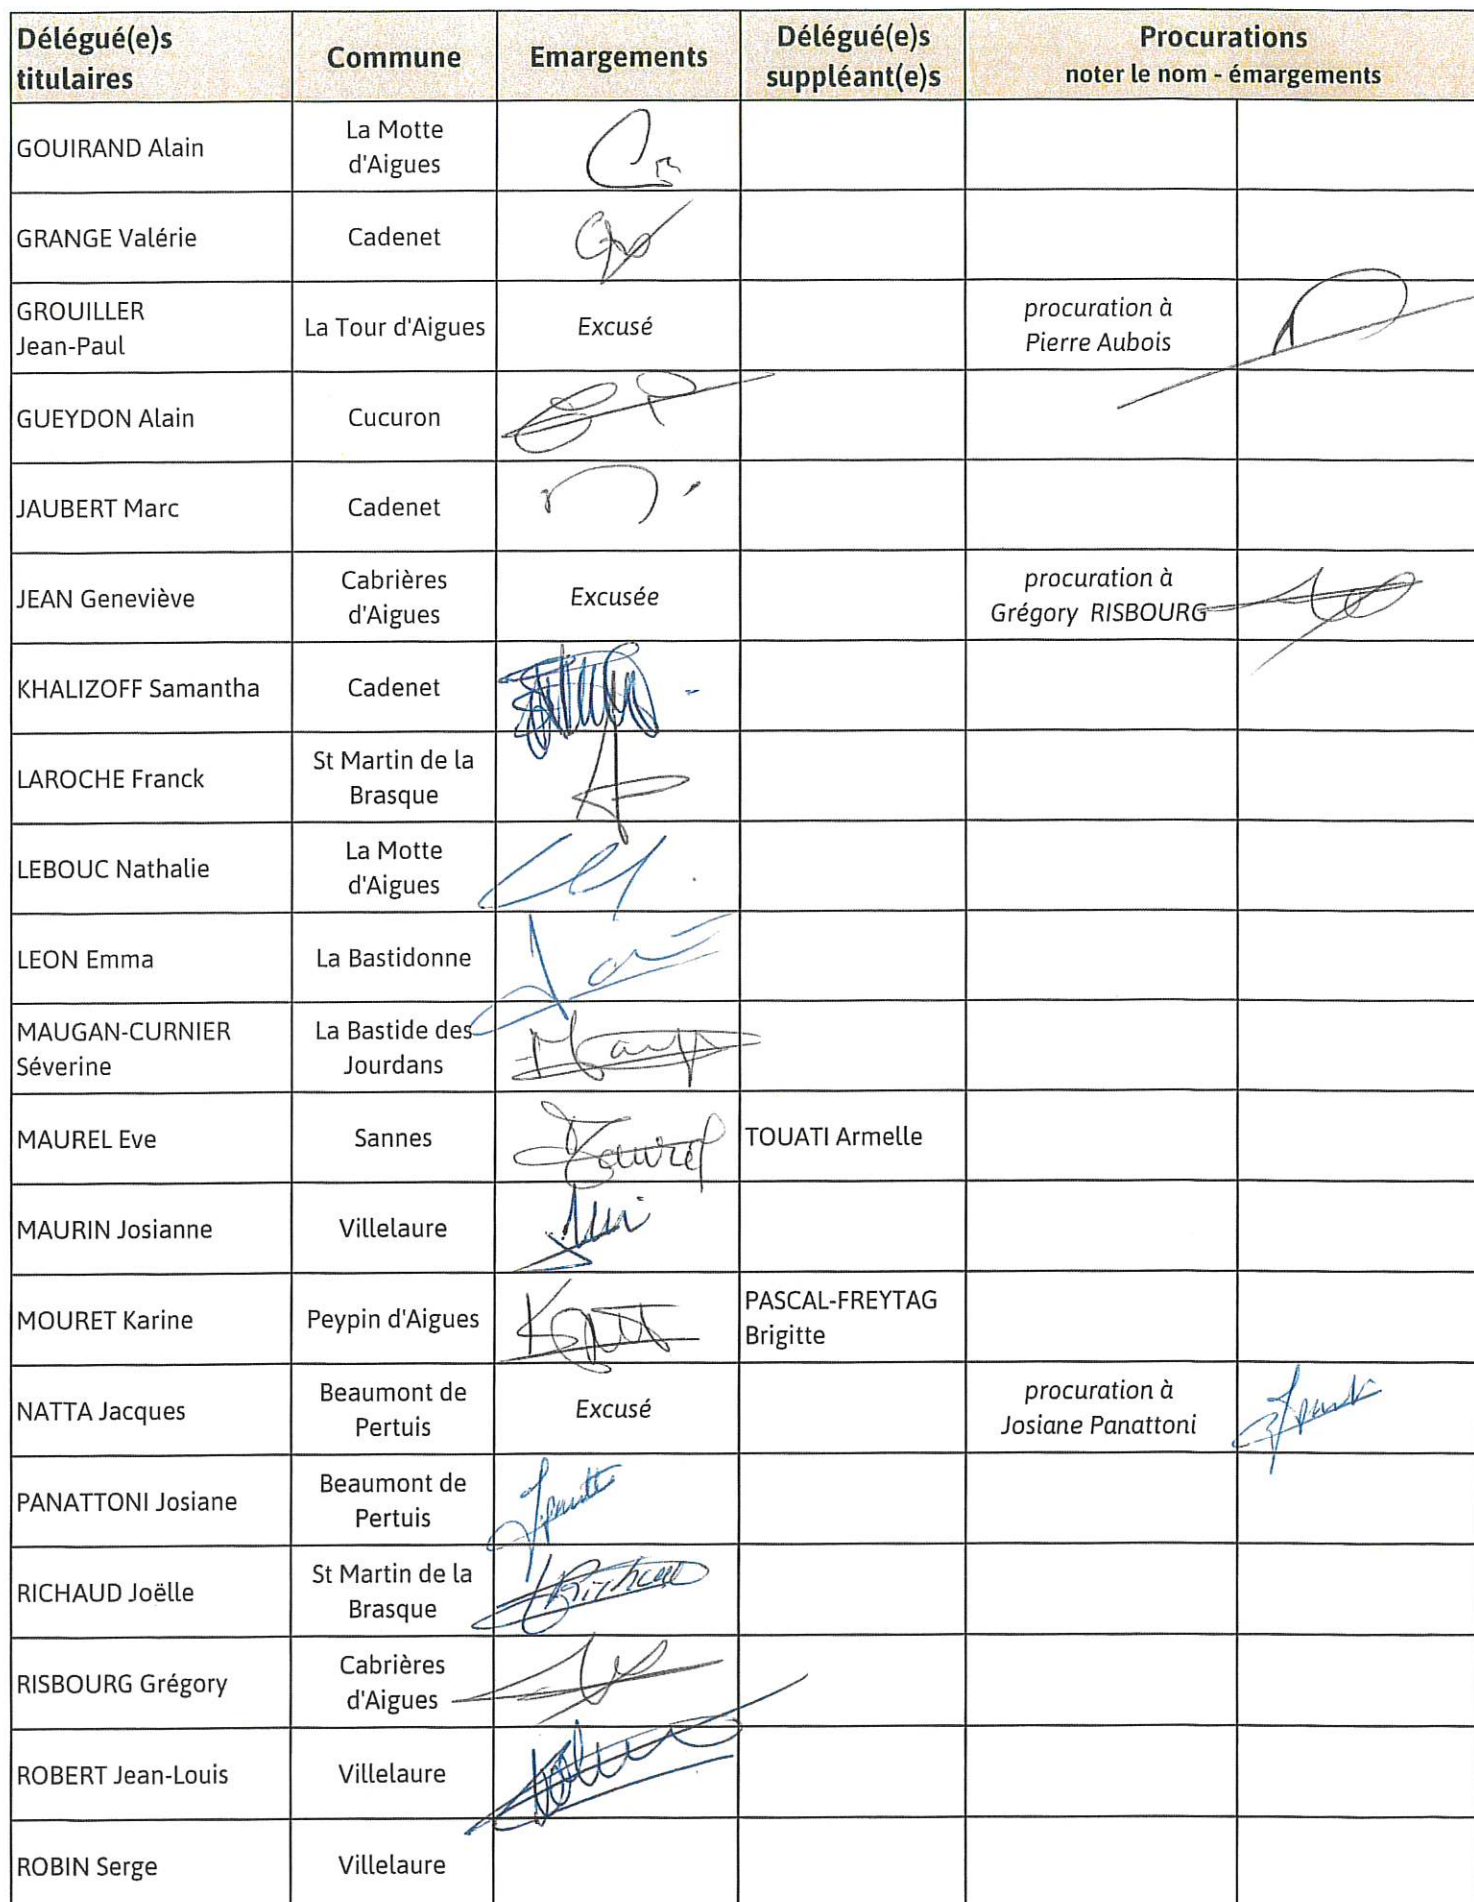 Délégué(e)s
titulaires
Commune
Emargements
Délégué(e)s
suppléant(e)s
Procurations
noter le nom - émargements
GOUIRAND Alain
La Motte
d'Aigues
GRANGE Valérie
Cadenet
GROUILLER
Jean-Paul
La Tour d'Aigues
Excusé
procuration à
Pierre Aubois
GUEYDON Alain
Cucuron
JAUBERT Marc
Cadenet
JEAN Geneviève
Cabrières
d'Aigues
Excusée
procuration à
Grégory RISBOURG
KHALIZOFF Samantha
Cadenet
LAROCHE Franck
St Martin de la
Brasque
LEBOUC Nathalie
La Motte
d'Aigues
LEON Emma
La Bastidonne
MAUGAN-CURNIER
Séverine
La Bastide des
Jourdans
MAUREL Eve
Sannes
TOUATI Armelle
MAURIN Josianne
Villelaure
MOURET Karine
Peypin d'Aigues
PASCAL-FREYTAG
Brigitte
NATTA Jacques
Beaumont de
Pertuis
Excusé
procuration à
Josiane Panattoni
PANATTONI Josiane
Beaumont de
Pertuis
RICHAUD Joëlle
St Martin de la
Brasque
RISBOURG Grégory
Cabrières
d'Aigues
ROBERT Jean-Louis
Villelaure
ROBIN Serge
Villelaure